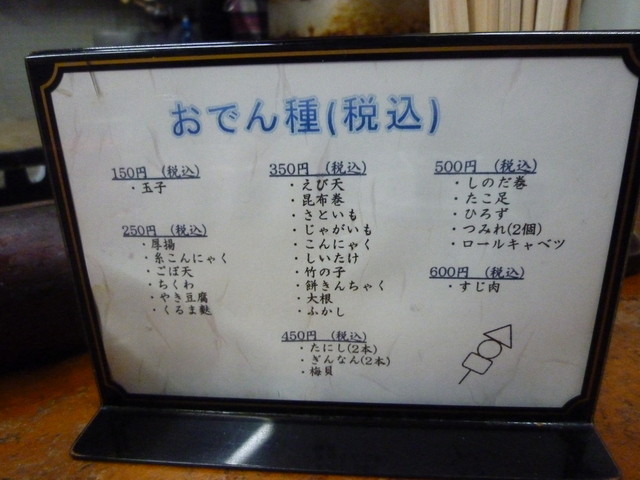 おでん種(税込)
150円 (税込)
・玉子
250円 (税込)
・厚揚
・糸こんにゃく
・ごぼ天
・ちくわ
・やき豆腐
・くるま麩
350円 (税込)
・えび天
・昆布巻
・さといも
・じゃがいも
・こんにゃく
・しいたけ
・竹の子
・餅きんちゃく
・大根
・ふかし
450円 (税込)
・たにし(2本)
・ぎんなん(2本)
・梅貝
500円 (税込)
・しのだ巻
・たこ足
・ひろず
・つみれ(2個)
・ロールキャベツ
600円 (税込)
・すじ肉